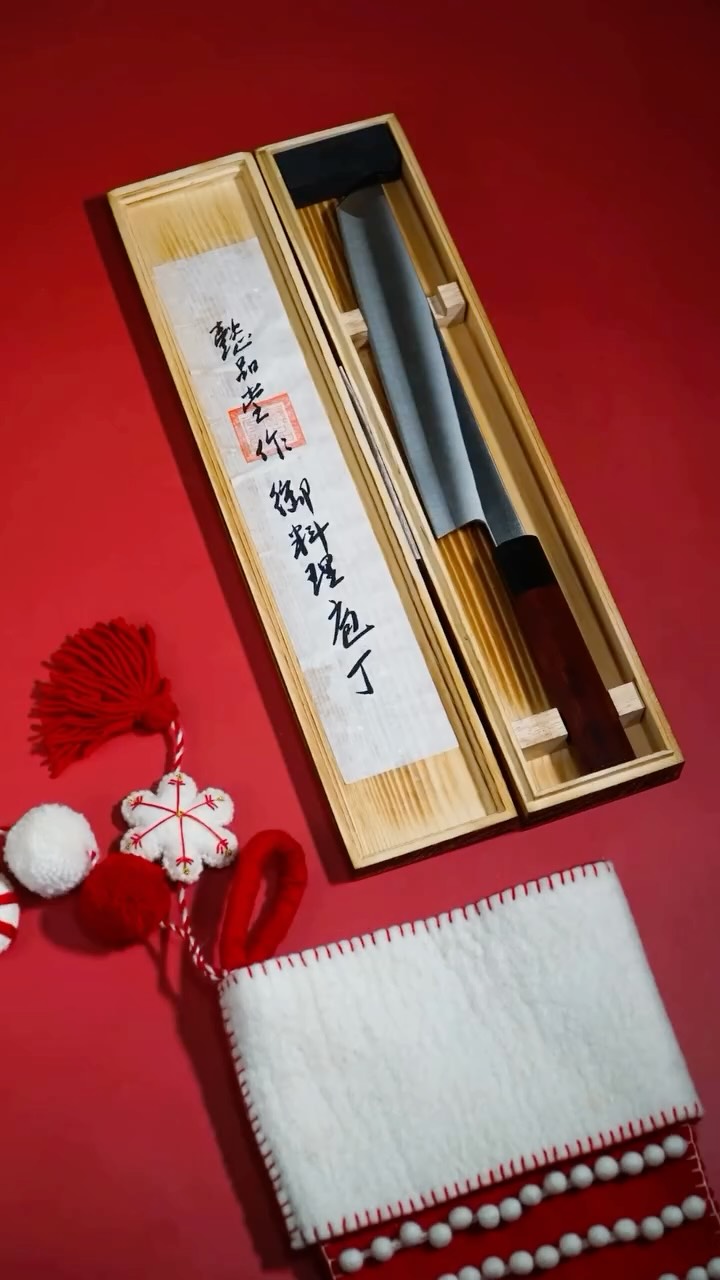 懿品堂作 御料理庖丁